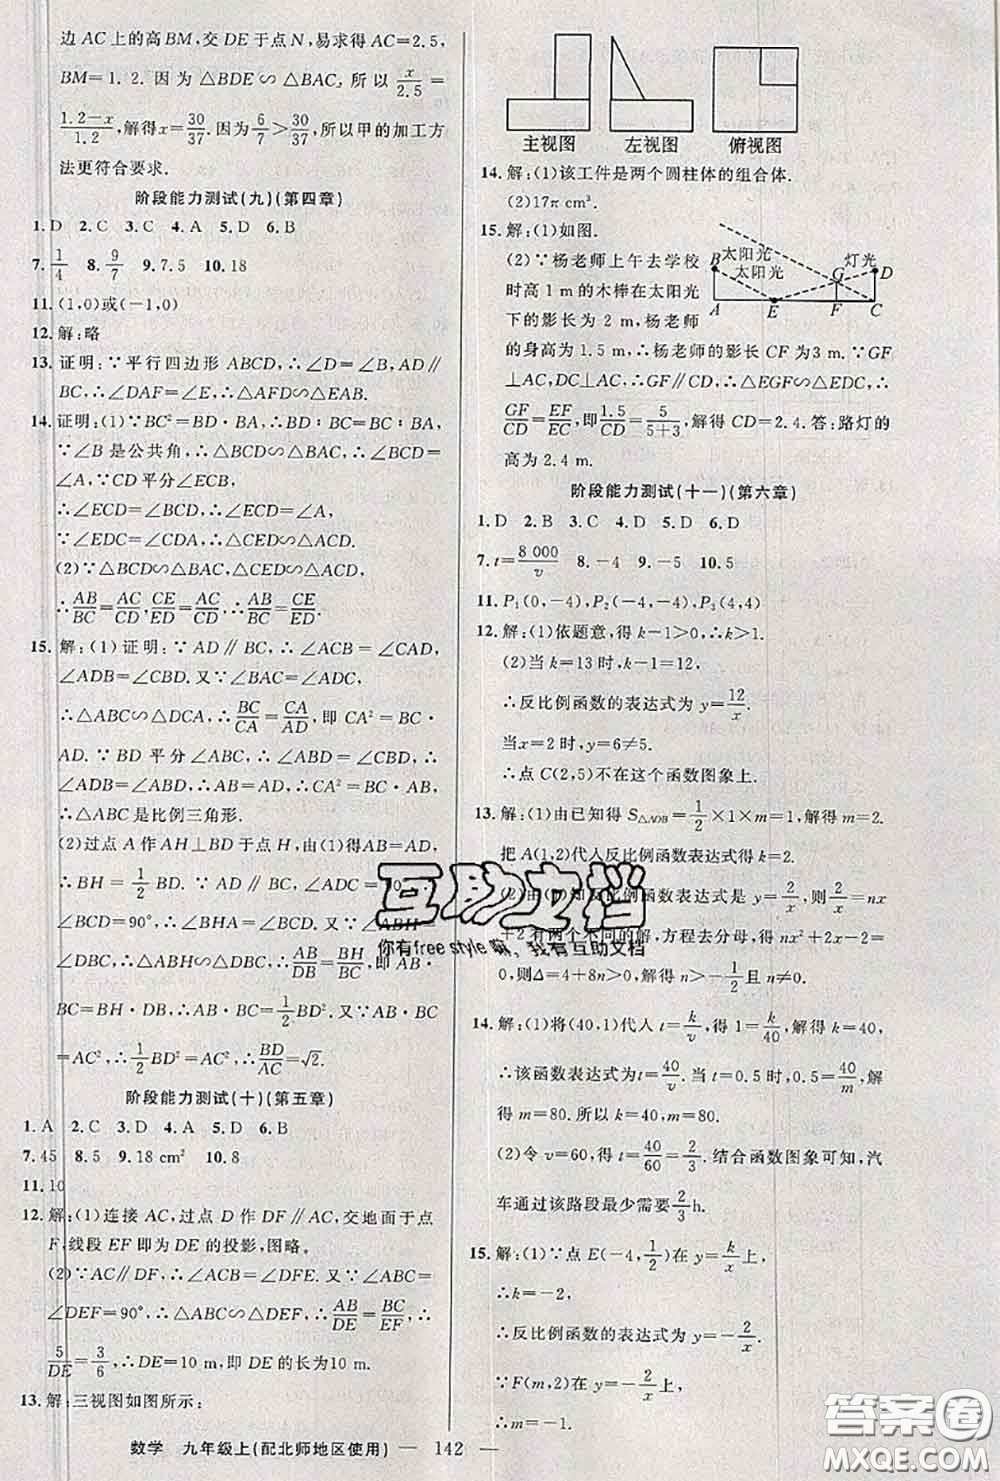 边 AC 上的高 BM,交 DE 于点 N,易求得 AC=2.5,
BM=1.2. 因为 △BDE∽△BAC,所以 x/2.5=
(1.2-x)/1.2,解得x=30/37. 因为 6/7>30/37,所以甲的加工方
法更符合要求.
阶段能力测试(九)(第四章)
1.D 2.C 3.C 4.A 5.D 6.B
7.1/4 8.9/7 9.7.5 10.18
11.(1,0)或(-1,0)
12.解:略
13.证明:∵平行四边形 ABCD,∴∠D=∠B,AD∥
BC,∴∠DAF=∠E,∴△DAF∽△EAB.
14.证明:(1)∵BC²=BD·BA,∴BD:BC=BC:BA,
∵∠B 是公共角,∴△BCD∽△BAC,∴∠BCD=
∠A,∵CD 平分∠ECB,
∴∠ECD=∠BCD,∴∠ECD=∠A,
∵∠EDC=∠CDA,∴△CED∽△ACD.
(2)∵△BCD∽△BAC,△CED∽△ACD,
∴AB/BC=AC/CD,CE/ED=AC/CD,∴AB/BC=CE/ED.
15.解:(1)证明:∵AD∥BC,∴∠ACB=∠CAD,
∠ADB=∠CBD.又∵∠BAC=∠ADC,
∴△ABC∽△DCA,∴BC/CA=CA/AD,即 CA²=BC·
AD.∵BD 平分∠ABC,∴∠ABD=∠CBD,∴
∠ADB=∠ABD,∴AB=AD,∴CA²=BC·AB,∴
△ABC是比例三角形.
(2)过点 A 作AH⊥BD于点 H,由(1)得AB=AD,
∴BH=1/2BD.∵AD∥BC,∴∠ADC
∠BCD=90°,∴∠BHA=∠BCD.又∵∠ABH
∠DBC,∴△ABH∽△DBC,∴AB/DB=BH/BC,即AB·
BC=BH·DB,∴AB·BC=1/2BD².又∵AB·BC
=AC²,∴1/2BD²=AC²,∴BD/AC=√2.
阶段能力测试(十)(第五章)
1.A 2.C 3.D 4.A 5.D 6.B
7.45 8.5 9.18 cm² 10.8
11.10
12.解:(1)连接 AC,过点 D 作 DF∥AC,交地面于点
F,线段 EF 即为 DE 的投影,图略.
(2)∵AC∥DF,∴∠ACB=∠DFE.又∵∠ABC=
∠DEF=90°,∴△ABC∽△DEF,∴AB/DE=BC/EF,∴
5/DE=3/6,∴DE=10 m,即 DE 的长为10 m.
13.解:三视图如图所示:
主视图 左视图 俯视图
14.解:(1)该工件是两个圆柱体的组合体.
(2)17π cm³.
15.解:(1)如图.
(2)∵杨老师上午去学校
时高 1 m 的木棒在太阳光
下的影长为 2 m,杨老师
的身高为 1.5 m,∴杨老师的影长 CF 为3 m.∵GF
⊥AC,DC⊥AC,∴GF∥CD,∴△EGF∽△EDC,∴
GF/CD=EF/EC,即1.5/CD=5/(5+3),解得 CD=2.4.答:路灯的
高为 2.4 m.
B 太阳光 太阳光 灯光 D G A E F C
阶段能力测试(十一)(第六章)
1.D 2.B 3.C 4.D 5.D 6.D
7.t=8 000/v 8.-4 9.-5 10.5
11.P₁(0,-4),P₂(-4,-4),P₃(4,4)
12.解:(1)依题意,得 k-1>0,∴k>1.
(2)当 k=13 时,k-1=12,
∴反比例函数的表达式为 y=12/x.
当x=2 时,y=6≠5.
∴点 C(2,5)不在这个函数图象上.
13.解:(1)由已知得 S△AOB=1/2×1×m=1,解得 m=2.
把 A(1,2)代入反比例函数表达式得 k=2.
(2)由(1)知反比例函数表达式是 y=2/x,则2/x=nx
+2有两个不同的解,方程去分母,得 nx²+2x-2=
0,则Δ=4+8n>0,解得 n>-1/2且 n≠0.
14.解:(1)将(40,1)代入 t=k/v,得 1=k/40,解得 k=40,
∴该函数表达式为 t=40/v,当 t=0.5 时,0.5=40/m,解
得 m=80.所以 k=40,m=80.
(2)令 v=60,得 t=40/60=2/3.结合函数图象可知,汽
车通过该路段最少需要2/3h.
15.解:(1)∵点 E(-4,1/2)在 y=k/x上,
∴k=-2,
∴反比例函数的表达式为 y=-2/x.
∵F(m,2)在 y=-2/x上,
∴m=-1.
互助文档
你有free style嘛,我有互助文档
答案圈
MXQE.COM
数学 九年级上(配北师地区使用) — 142 —